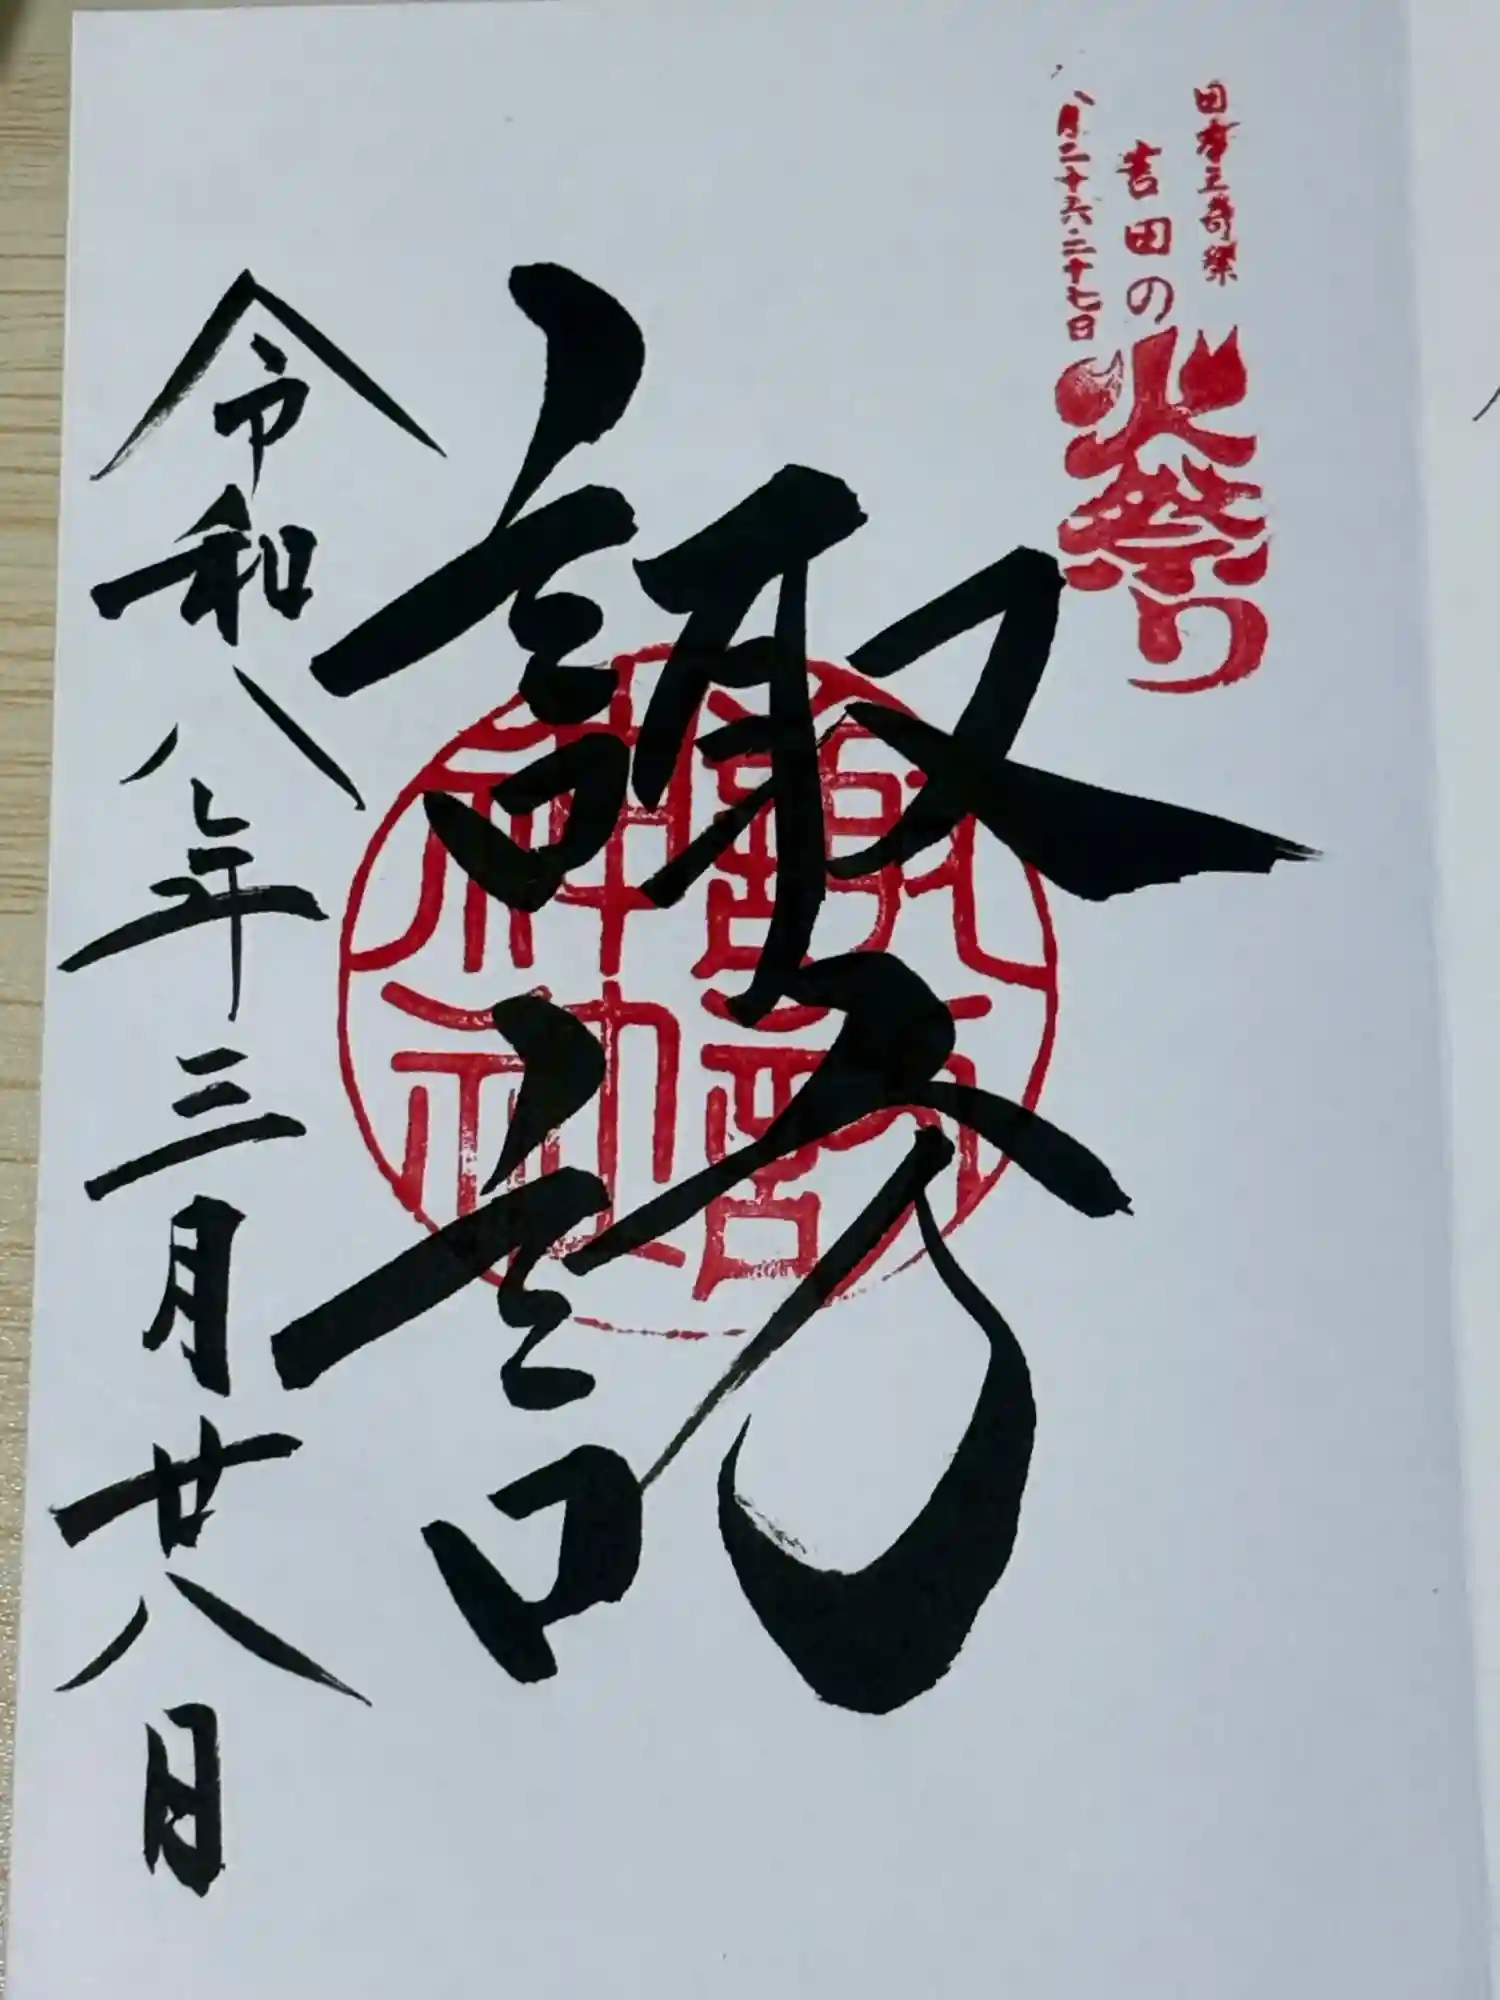 日本三奇祭
吉田の
火祭り
八月二十六・二十七日
諏訪
諏訪神社
令和八年三月廿八日